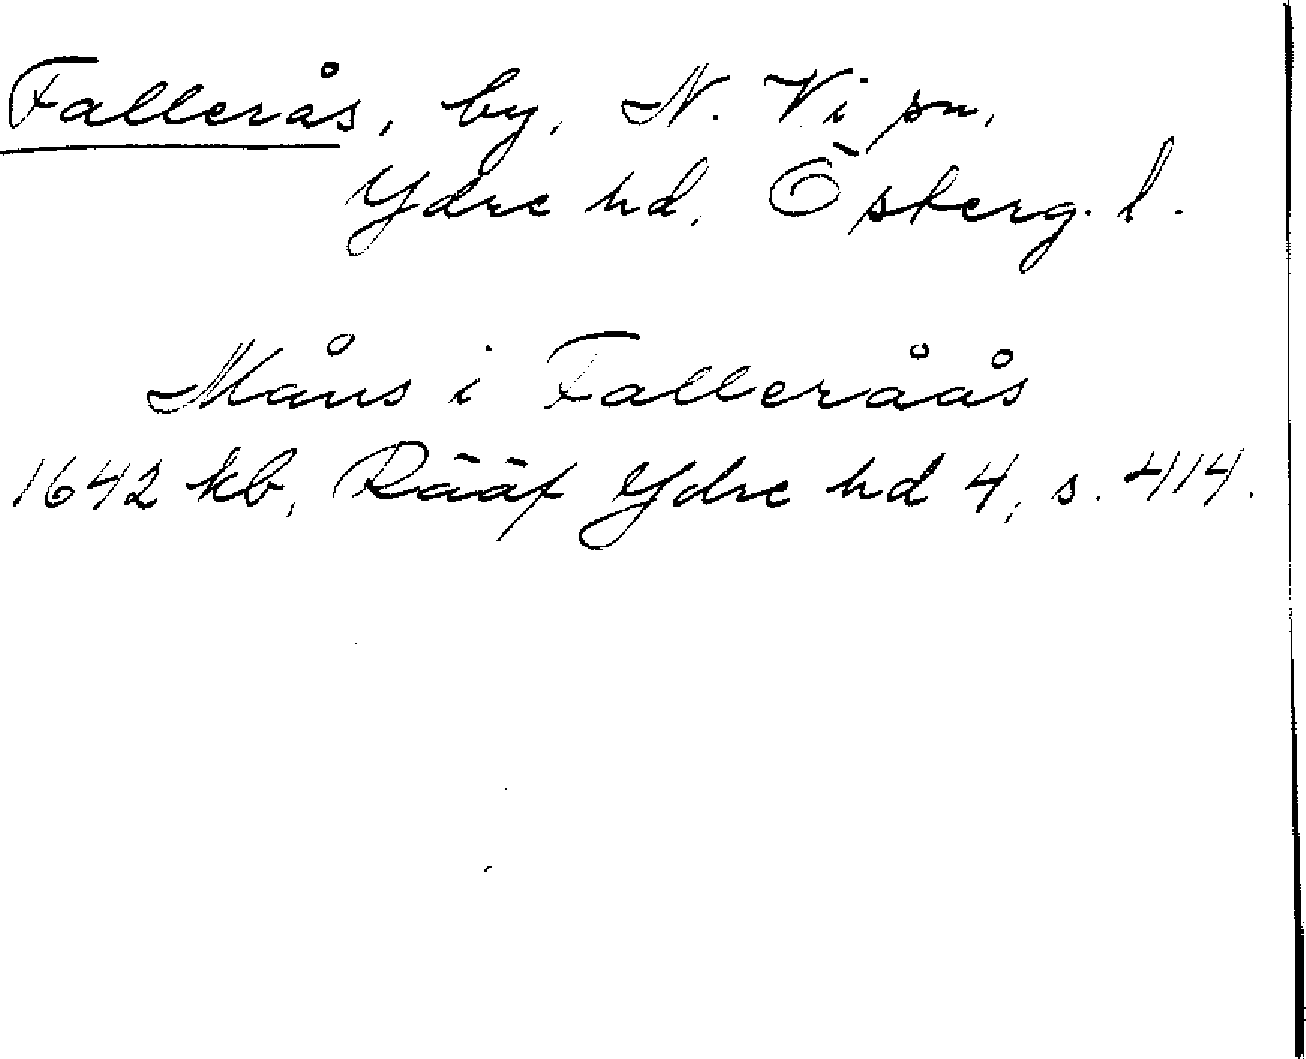 Fallerås, by, N. Vi sn,
Ydre hd, Österg. l.
Måns i Falleråås
1642 kb, Rääf Ydre hd 4, s. 414.